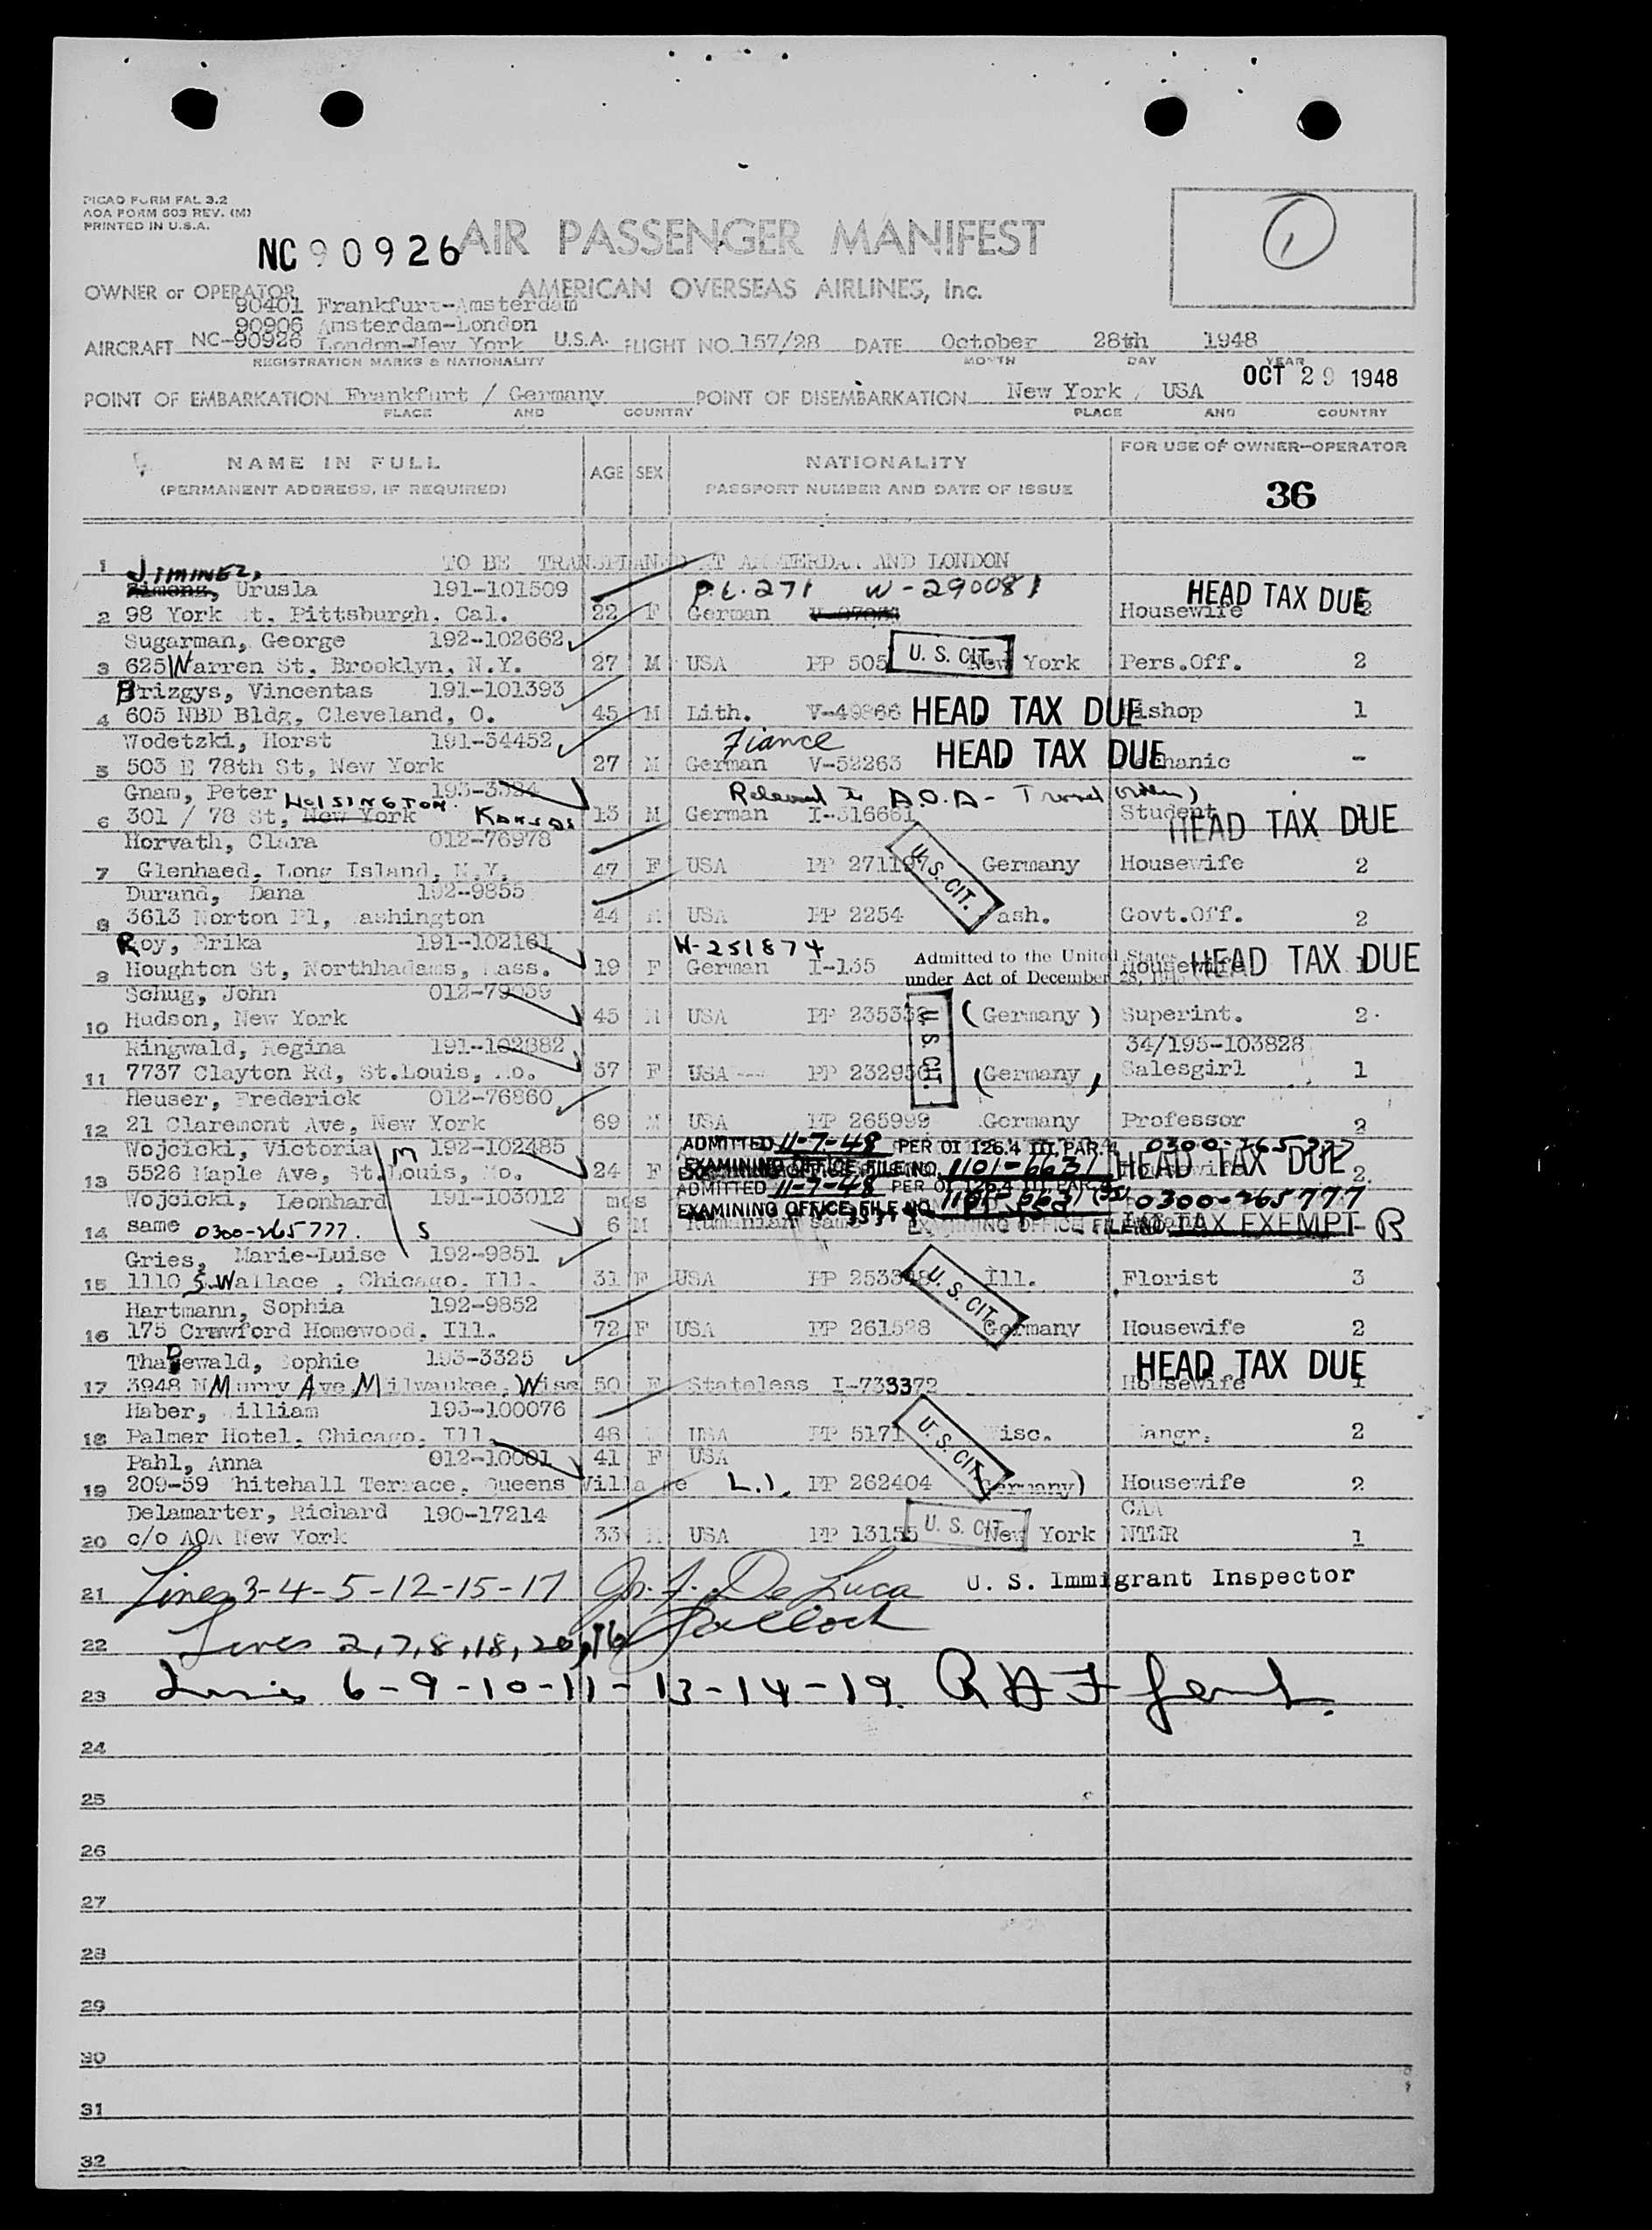 PICAO FORM FAL 3.2
AOA FORM 603 REV. (M)
PRINTED IN U.S.A.
NC 90926
AIR PASSENGER MANIFEST
1
OWNER or OPERATOR
AMERICAN OVERSEAS AIRLINES, Inc.
90401 Frankfurt-Amsterdam
90906 Amsterdam-London
AIRCRAFT NC-90926 London-New York U.S.A. FLIGHT NO. 157/28 DATE October 28th 1948
REGISTRATION MARKS & NATIONALITY MONTH DAY YEAR
OCT 29 1948
POINT OF EMBARKATION Frankfurt / Germany POINT OF DISEMBARKATION New York, USA
PLACE AND COUNTRY PLACE AND COUNTRY
NAME IN FULL AGE SEX NATIONALITY FOR USE OF OWNER-OPERATOR
(PERMANENT ADDRESS, IF REQUIRED) PASSPORT NUMBER AND DATE OF ISSUE 36
1 TO BE TRANSPLANED AT AMSTERDAM AND LONDON
JIMINEZ,
Urusla 191-101509 P.L. 271 W-290081 HEAD TAX DUE
2 98 York St. Pittsburgh. Cal. 22 F German Housewife 2
Sugarman, George 192-102662 U. S. CIT.
3 625 Warren St. Brooklyn, N.Y. 27 M USA PP 505 New York Pers.Off. 2
Brizgys, Vincentas 191-101393
4 605 NBD Bldg, Cleveland, O. 45 M Lith. V-49866 HEAD TAX DUE Bishop 1
Wodetzki, Horst 191-34452 Fiance HEAD TAX DUE
5 503 E 78th St, New York 27 M German V-52263 Mechanic -
Gnam, Peter 193-3324 Released to A.O.A - Travel
HOISINGTON. KANSAS
6 301 / 78 St, New York 13 M German I-316661 Student HEAD TAX DUE
Horvath, Clara 012-76978
7 Glenhaed, Long Island, N.Y. 47 F USA PP 271197 U. S. CIT. Germany Housewife 2
Durand, Dana 192-9855
8 3613 Norton Pl, Washington 44 M USA PP 2254 Wash. Govt.Off. 2
Roy, Erika 191-102161 W-251874 Admitted to the United States HEAD TAX DUE
9 Houghton St, Northhadams, Mass. 19 F German I-135 under Act of December 28, Housewife 1
Schug, John 012-79039
10 Hudson, New York 45 M USA PP 235339 U. S. CIT. (Germany) Superint. 2
Ringwald, Regina 191-102882 34/193-103828
11 7737 Clayton Rd, St.Louis, Mo. 37 F USA PP 232930 (Germany) Salesgirl 1
Heuser, Frederick 012-76860
12 21 Claremont Ave, New York 69 M USA PP 265999 Germany Professor 2
Wojcicki, Victoria M 192-102485 ADMITTED 11-7-48 PER OI 126.4 III, PAR. 4 0300-265777
13 5526 Maple Ave, St.Louis, Mo. 24 F EXAMINING OFFICE FILE NO. 1101-6631 HEAD TAX DUE Housewife 2
Wojcicki, Leonhard 191-103012 mos ADMITTED 11-7-48 PER OI 126.4 III, PAR. 4 0300-265777
14 same 0300-265777. S 6 M Rumanian same EXAMINING OFFICE FILE NO. TAX EXEMPT
Gries, Marie-Luise 192-9851
15 1110 S. Wallace , Chicago. Ill. 31 F USA PP 253348 U. S. CIT. Ill. Florist 3
Hartmann, Sophia 192-9852
16 175 Crawford Homewood, Ill. 72 F USA PP 261528 Germany Housewife 2
Thadewald, Sophie 193-3325 HEAD TAX DUE
17 3948 N Murry Ave Milwaukee, Wisc 50 F Stateless I-733372 Housewife 1
Haber, William 193-100076
18 Palmer Hotel. Chicago. Ill. 48 M USA PP 5171 U. S. CIT. Wisc. Mangr. 2
Pahl, Anna 012-10001 41 F USA
19 209-59 Whitehall Terrace, Queens Village L.I. PP 262404 (Germany) Housewife 2
Delamarter, Richard 190-17214 CAA
20 c/o AOA New York 33 M USA PP 13155 U. S. CIT. New York NTMR 1
21 Lines 3-4-5-12-15-17 De Luca U. S. Immigrant Inspector
22 Lines 2,7,8,18,20,16
23 Lines 6-9-10-11-13-14-19.
24
25
26
27
28
29
30
31
32